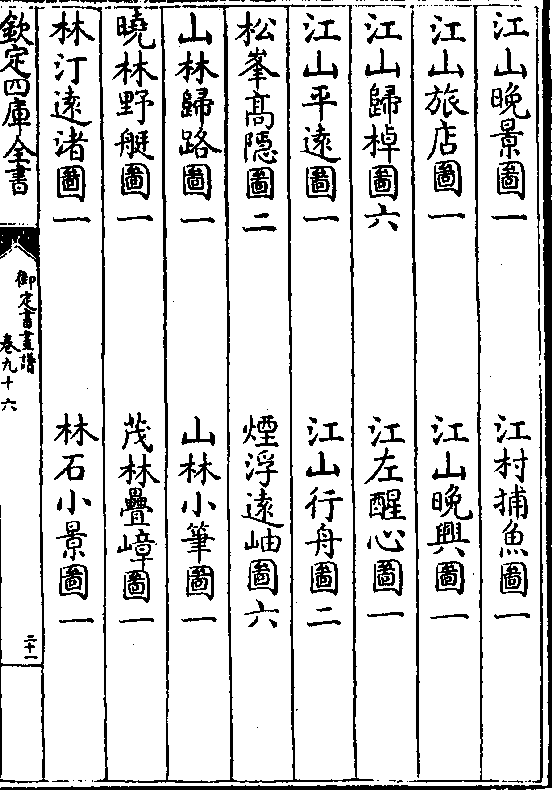 江山晚景圖一　江村捕魚圖一
江山旅店圖一　江山晚興圖一
江山歸棹圖六　江左醒心圖一
江山平逺圖一　江山行舟圖二
松峯髙隠圖二　煙浮逺岫圖六
山林歸路圖一　山林小筆圖一
曉林野艇圖一　茂林疊嶂圖一
林汀逺渚圖一　林石小景圖一
欽定四庫全書
御定書畫譜
卷九十六
二十一